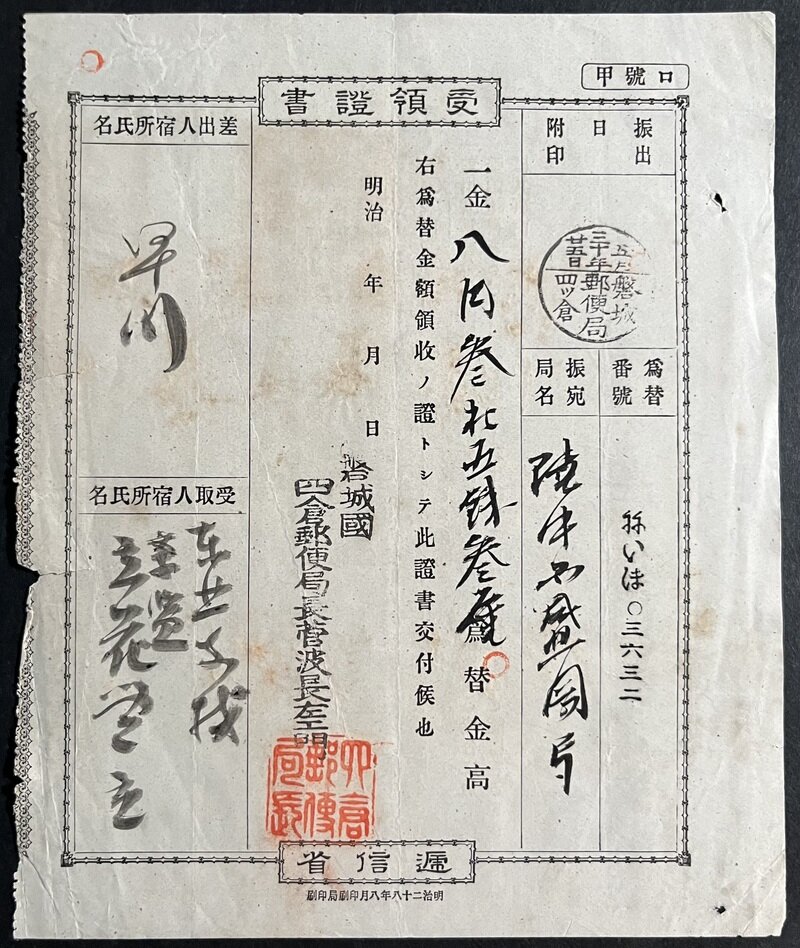 甲號口
受領證書
振出
日
附印
磐城
四ツ倉
郵便局
三十年
五月
廿五日
爲替番號
ゐいほ〇三六三二
振宛局名
陸中 盛岡局
一金八円叄拾五錢叄厘 爲替金高
右爲替金額領收ノ證トシテ此證書交付候也
明治 年 月 日
磐城國
四倉郵便局長菅波長左工門
四倉郵便局長
差出人宿所氏名
早川
受取人宿所氏名
立花
遞信省
明治二十八年八月印刷局印刷